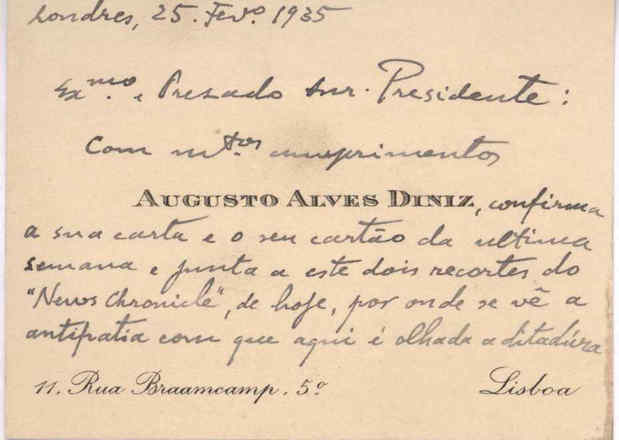 Londres, 25. Fevº. 1935
Exmo. e Prezado Snr. Presidente:
Com mtos cumprimentos
AUGUSTO ALVES DINIZ, confirma
a sua carta e o seu cartão da ultima
semana e junta a este dois recortes do
"News Chronicle", de hoje, por onde se vê a
antipatia com que aqui é olhada a ditadura
11. Rua Braamcamp. 5º Lisboa